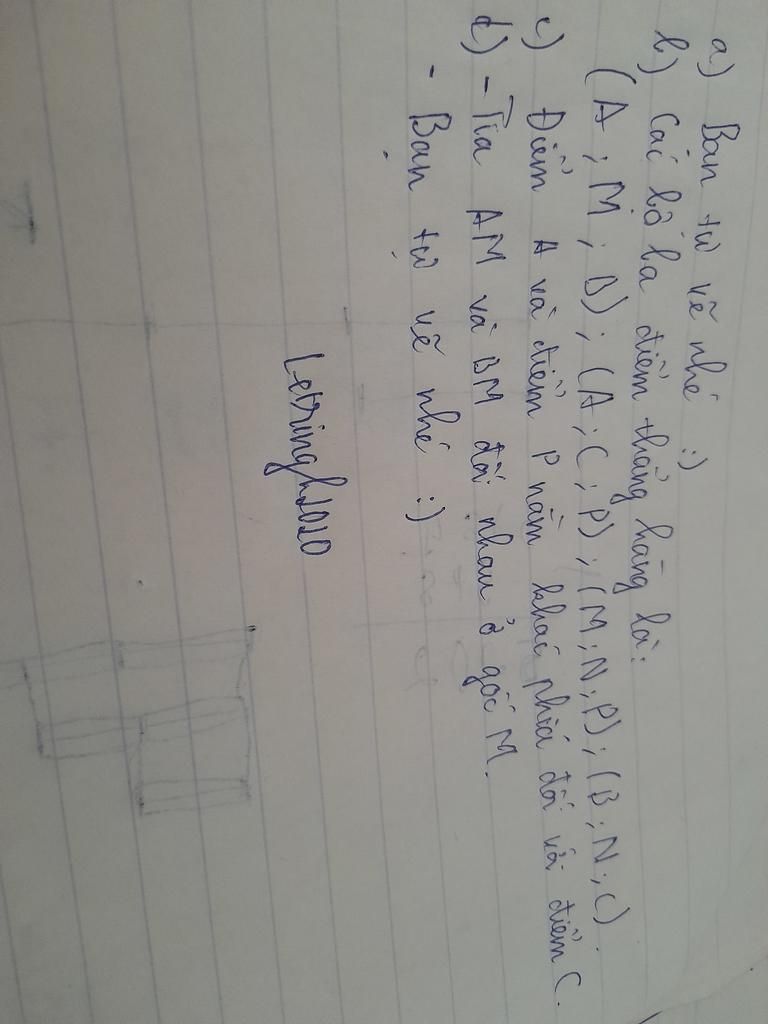 a) Bạn tự vẽ nhé :)
b) Các bộ ba điểm thẳng hàng là:
(A ; M ; B) ; (A ; C ; P) ; (M ; N ; P) ; (B ; N ; C).
c) Điểm A và điểm P nằm khác phía đối với điểm C.
d) - Tia AM và BM đối nhau ở gốc M.
- Bạn tự vẽ nhé :)